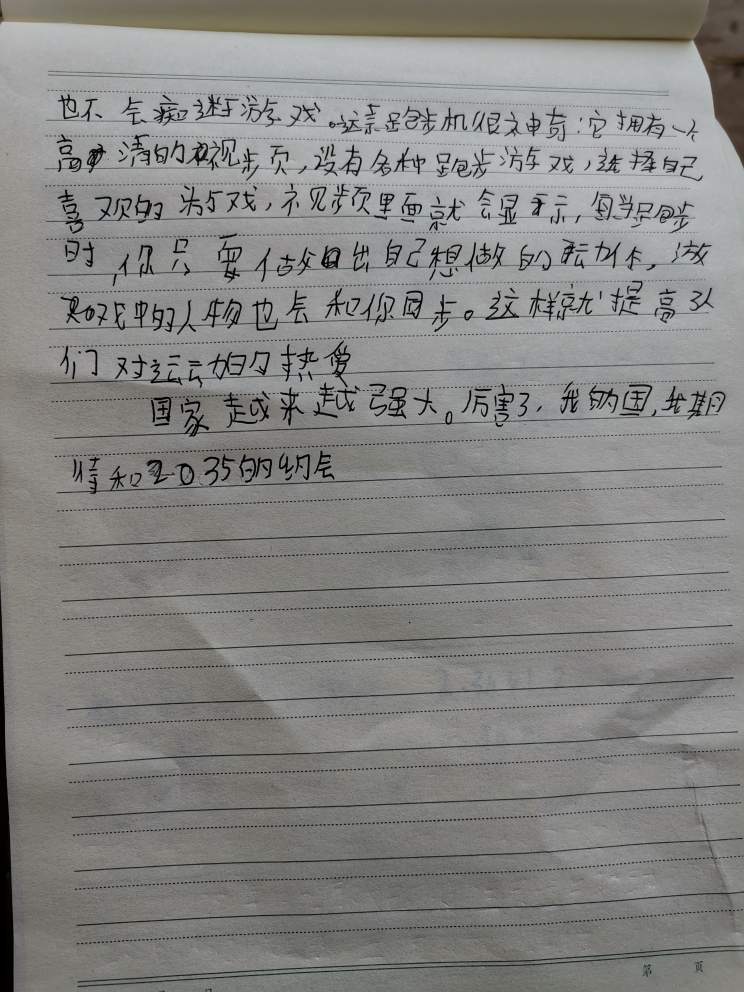 也不会痴迷于游戏。这条跑步机很神奇:它拥有一个
高清的视步页,设有各种跑步游戏,选择自己
喜欢的游戏,视频里面就会显示,每当跑步
时,你只要做出自己想做的运动作,游
戏中的人物也会和你同步。这样就提高了人
们对运动的热爱
国家越来越强大。厉害了,我的国,我期
待和2035的约会
第 页